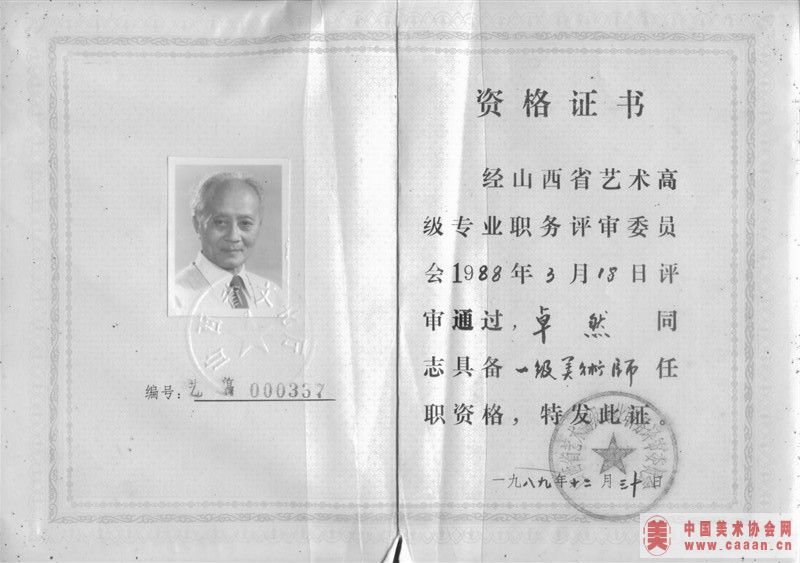 编号：艺 000337
资格证书
经山西省艺术高
级专业职务评审委员
会1988年3月18日评
审通过，卓然同
志具备一级美術师任
职资格，特发此证。
一九八九年十二月三十日
中国美术协会网
www.caaan.cn
美